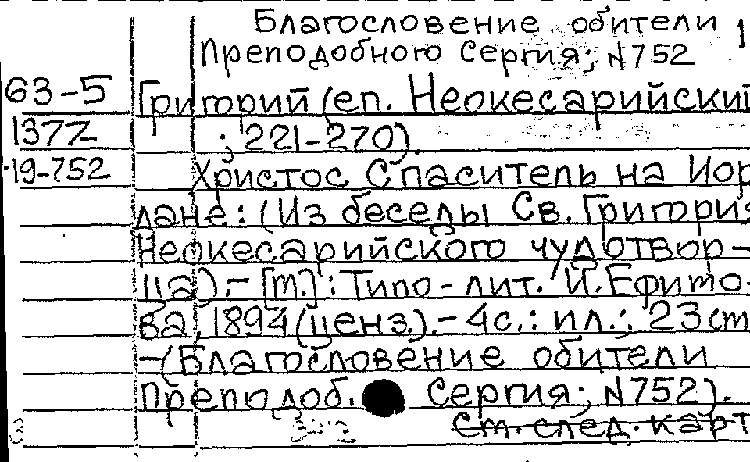 Благословение обители 1
Преподобного Сергия; №752
G3-5 Григорий (еп. Неокесарийский
1377 ; 221-270).
19-752 Христос Спаситель на Иор
дане: (Из беседы Св. Григория
Неокесарийского чудотвор-
ца).- [М.]: Типо-лит. И. Ефимо-
ва, 1894 (ценз.).- 4с.: ил.; 23см
-(Благословение обители
Преподоб. Сергия; №752).
3 См. след. карт